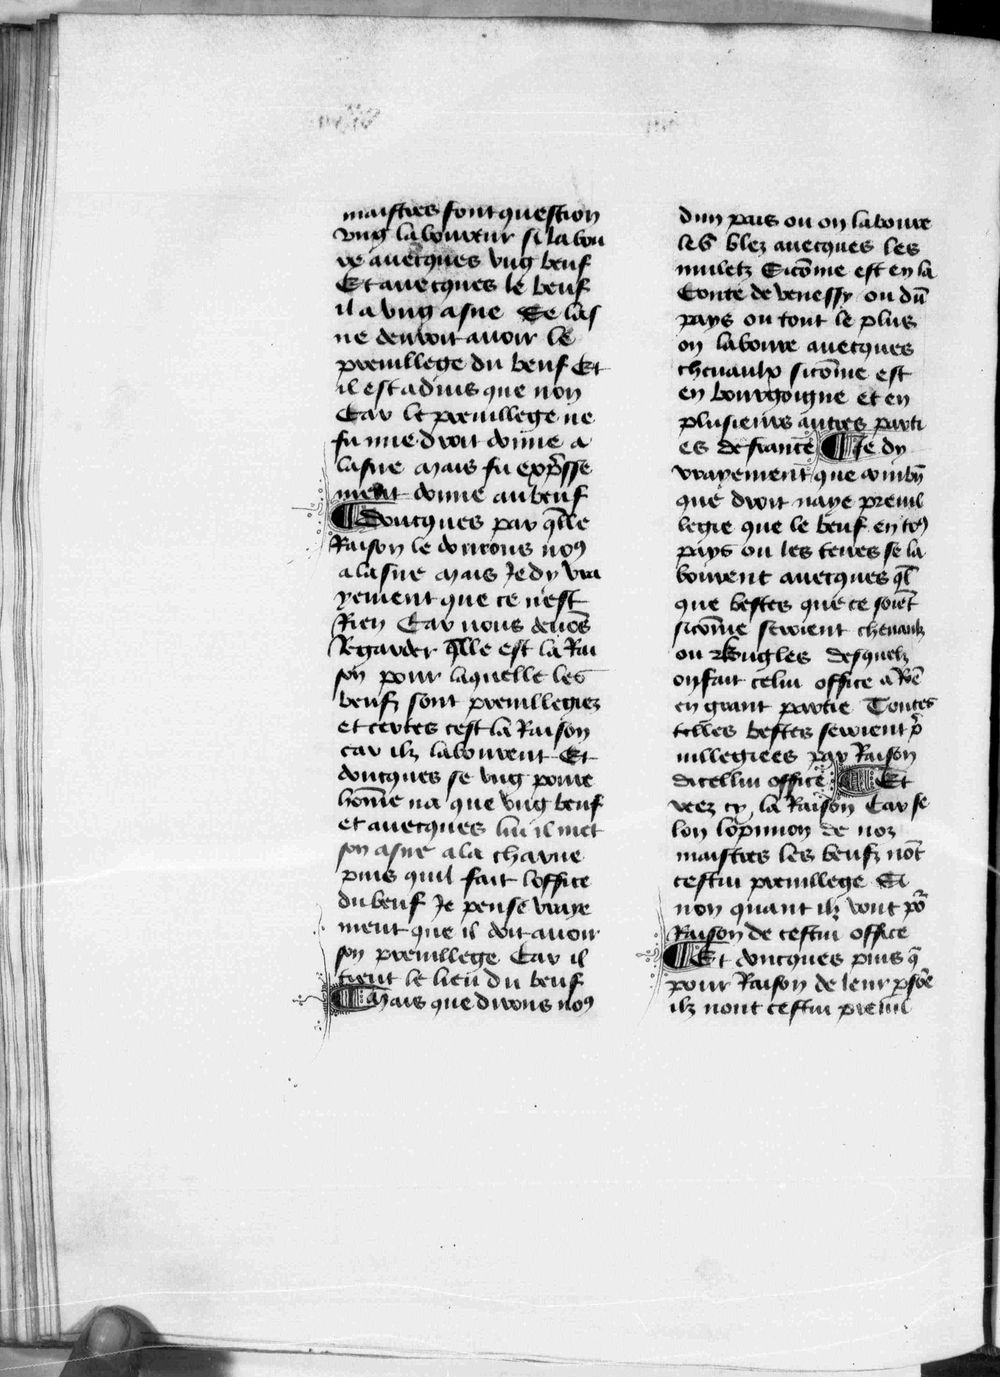 maistres font question
vng laboureur se labou
re auecques vng beuf
Et auecques le beuf
il a vng asne Se las
ne deuroit auoir le
preuillege du beuf Et
il est aduis que non
Car le preuillege ne
fu mie droit donne a
lasne mais fu exp̃sse
ment donne au beuf
¶ Doncques par q̃lle
Raison le donrons noꝯ
a lasne Mais Je dy vra
yement que ce nest
Rien Car nous deuõs
Regarder q̃lle est la Rai
son pour laquelle les
beufz sont preuillegiez
et certes cest la Raison
car ilz labourent Et
doncques se vng poure
hõme na que vng beuf
et auecques lui il met
son asne a la charue
puis quil fait loffice
du beuf Je pense vraye
ment que il doit auoir
son preuillege Car il
tient le lieu du beuf
¶ Mais que dirons noꝯ
dun pais ou on laboure
les blez auecques les
muletz Sicõme est en la
Conte de venessy ou dũ
pays ou tout le plus
on laboure auecques
cheuaulx sicõme est
en bourgoigne et en
plusieurs autres parti
es de france ¶ Je dy
vrayement que combiẽ
que droit naye preuil
legie que le beuf en toꝯ
pays ou les terres se la
bourent auecques q̃l
que bestes que ce soiẽt
sicõme seroient cheuaulz
ou Bugles desquelz
on fait celui office a Rõe
en grant partie Toutes
telles bestes seroient p̃
uillegiees par Raison
dicellui office ¶ Et
veez cy la Raison Car se
lon lopinion de noz
maistres les beufz nõt
cestui preuillege Si
non quant ilz vont põ
Raison de cestui office
¶ Et doncques puis q̃
pour Raison de leur p̱sõe
ilz nont cestui preuil